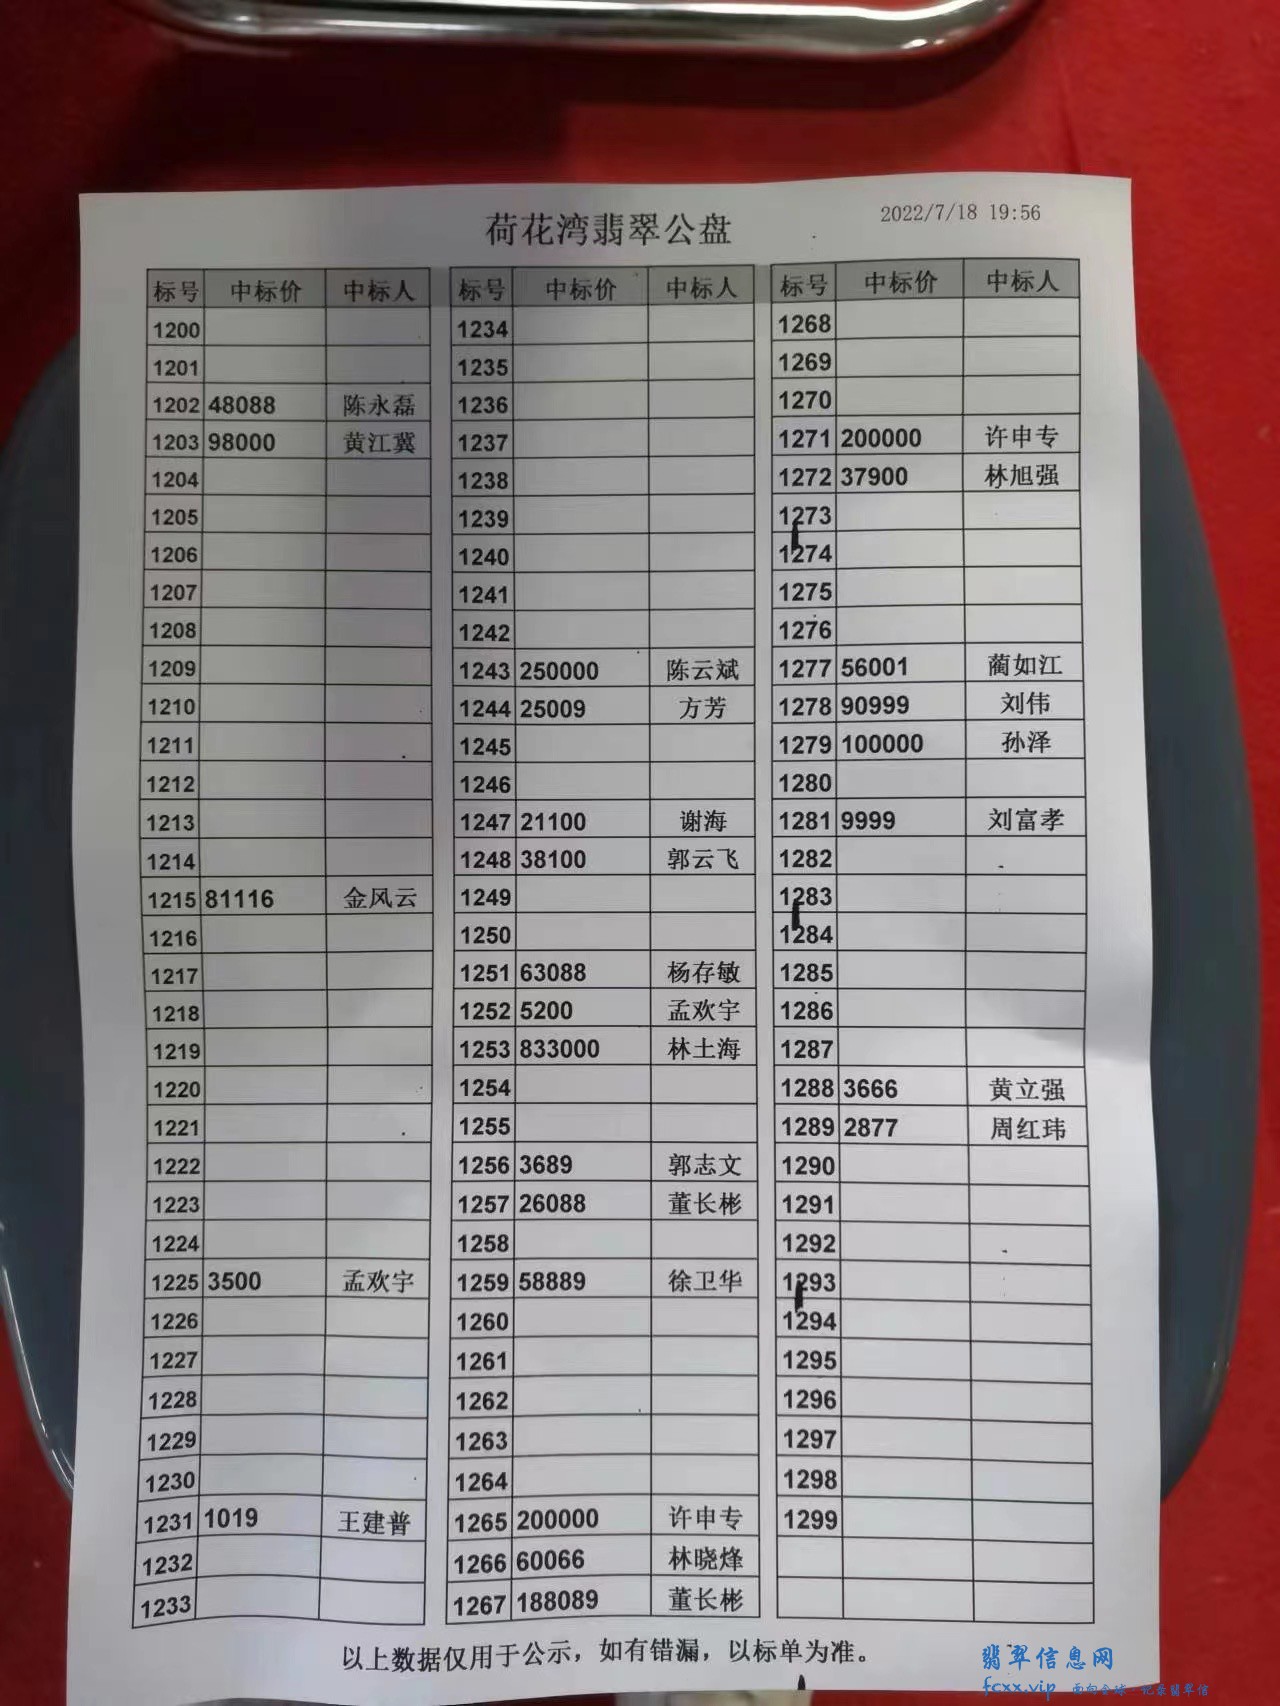 荷花湾翡翠公盘
2022/7/18 19:56
标号 中标价 中标人 标号 中标价 中标人 标号 中标价 中标人
1200 1234 1268
1201 1235 1269
1202 48088 陈永磊 1236 1270
1203 98000 黄江冀 1237 1271 200000 许申专
1204 1238 1272 37900 林旭强
1205 1239 1273
1206 1240 1274
1207 1241 1275
1208 1242 1276
1209 1243 250000 陈云斌 1277 56001 蔺如江
1210 1244 25009 方芳 1278 90999 刘伟
1211 1245 1279 100000 孙泽
1212 1246 1280
1213 1247 21100 谢海 1281 9999 刘富孝
1214 1248 38100 郭云飞 1282
1215 81116 金风云 1249 1283
1216 1250 1284
1217 1251 63088 杨存敏 1285
1218 1252 5200 孟欢宇 1286
1219 1253 833000 林土海 1287
1220 1254 1288 3666 黄立强
1221 1255 1289 2877 周红玮
1222 1256 3689 郭志文 1290
1223 1257 26088 董长彬 1291
1224 1258 1292
1225 3500 孟欢宇 1259 58889 徐卫华 1293
1226 1260 1294
1227 1261 1295
1228 1262 1296
1229 1263 1297
1230 1264 1298
1231 1019 王建普 1265 200000 许申专 1299
1232 1266 60066 林晓烽
1233 1267 188089 董长彬
以上数据仅用于公示，如有错漏，以标单为准。
翡翠信息网
fcxx.vip